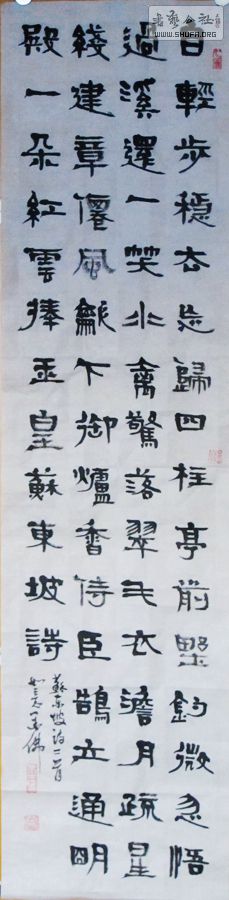 輕步穩去忘歸四柱亭前野釣微忽悟
過溪還一笑水禽驚落翠毛衣澹月疏星
繞建章僊風龡下御爐香侍臣鵠立通明
殿一朵紅雲捧玉皇蘇東坡詩
蘇東坡詩二首
書藝公社
WWW.SHUFA.ORG